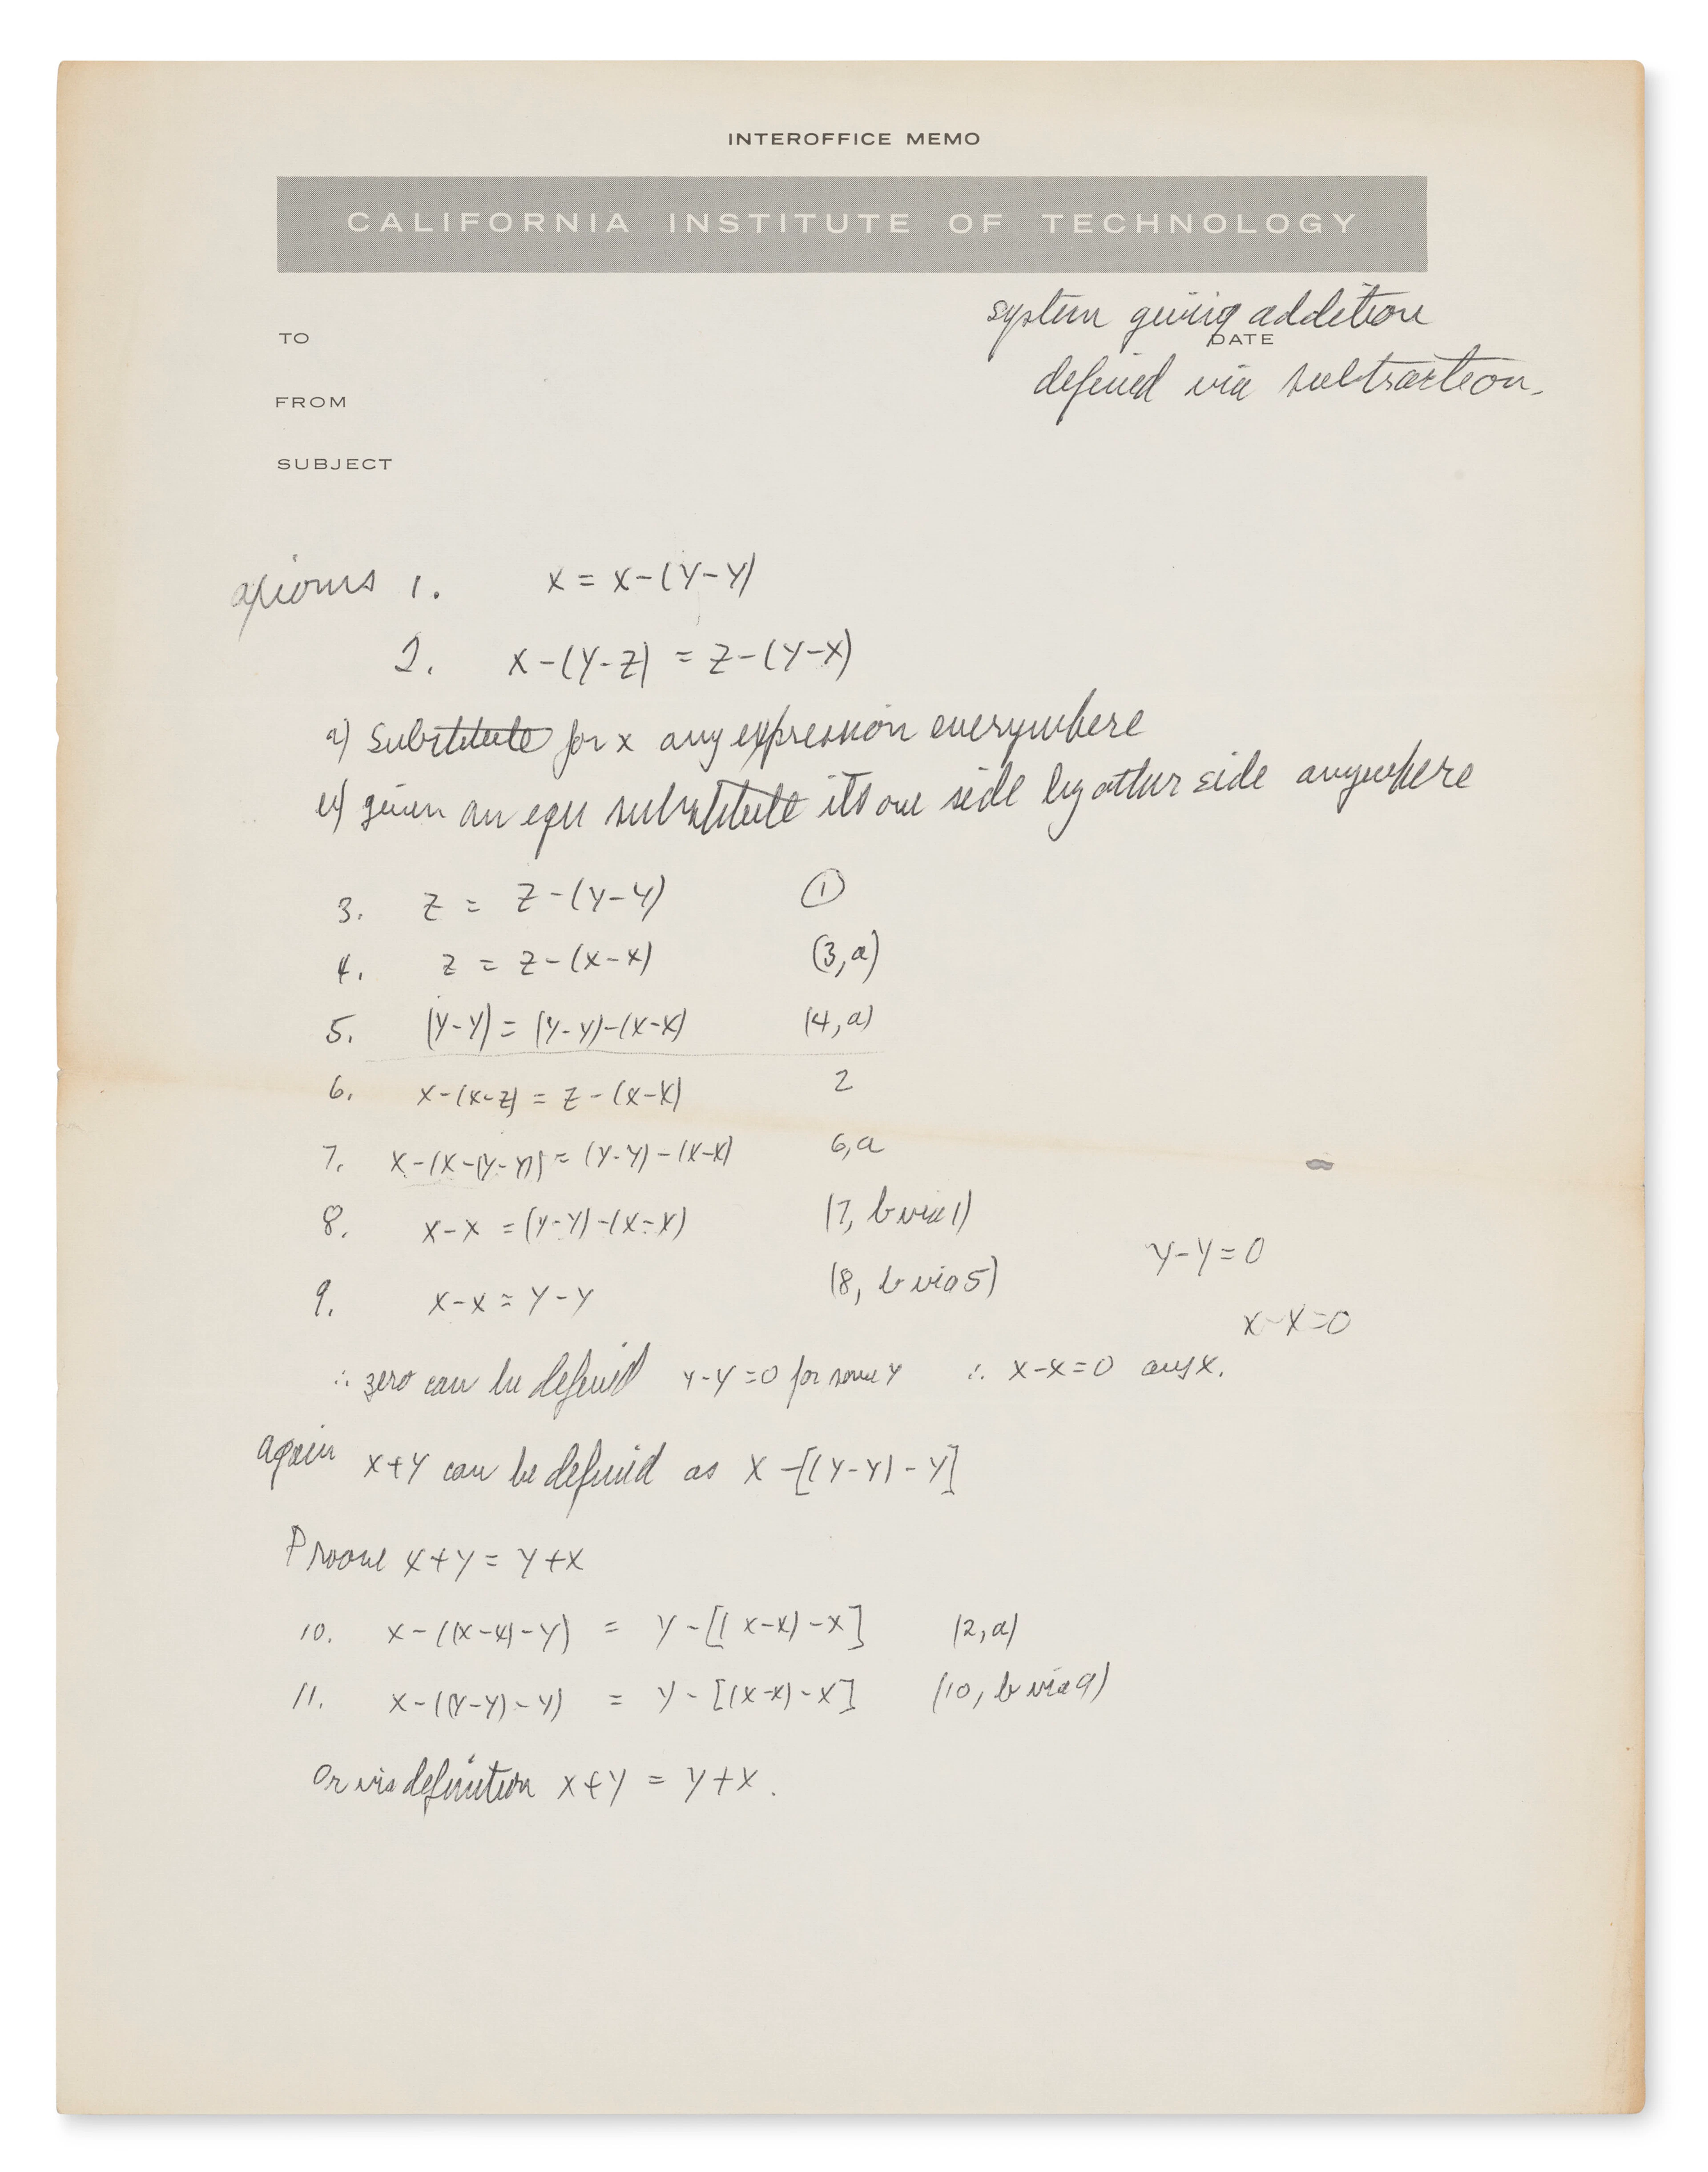 INTEROFFICE MEMO
CALIFORNIA INSTITUTE OF TECHNOLOGY
system giving addition
TO
DATE
defined via subtraction.
FROM
SUBJECT
axioms 1. x = x-(y-y)
2. x-(y-z) = z-(y-x)
a) Substitute for x any expression everywhere
b) given an equ substitute its one side by other side anywhere
3. z = z-(y-y) ①
4. z = z-(x-x) (3,a)
5. (y-y) = (y-y)-(x-x) (4,a)
6. x-(x-z) = z-(x-x) 2
7. x-(x-(y-y)) = (y-y)-(x-x) 6,a
8. x-x = (y-y)-(x-x) (7, b via 1)
y-y=0
9. x-x = y-y (8, b via 5)
x-x=0
∴ zero can be defined y-y=0 for some y ∴ x-x=0 any x.
again x+y can be defined as x-[(y-y)-y]
Proove x+y = y+x
10. x-((x-x)-y) = y-[(x-x)-x] (2,a)
11. x-((y-y)-y) = y-[(x-x)-x] (10, b via 9)
Or via definition x+y = y+x.